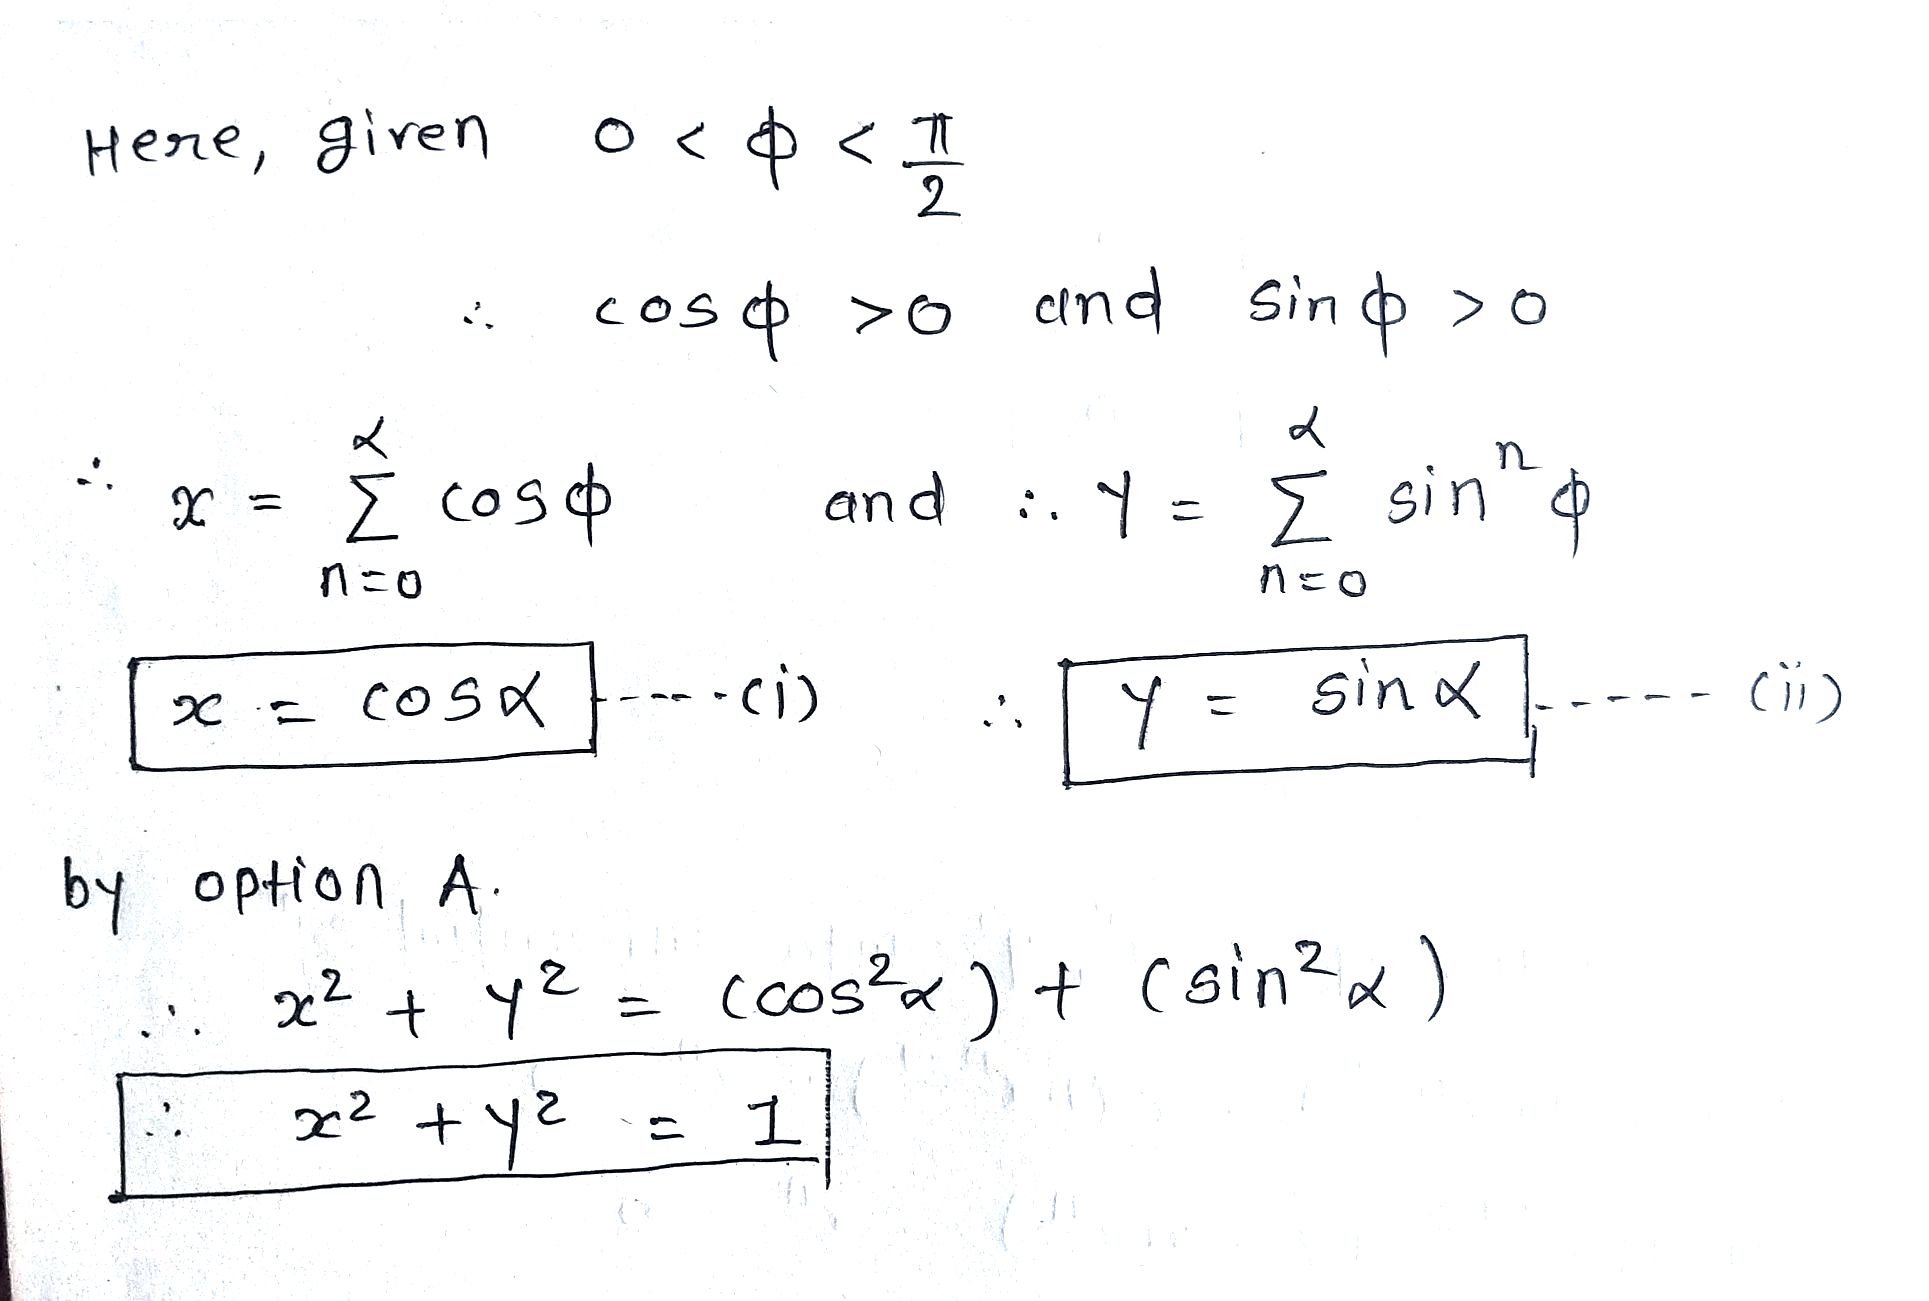 Here, given 0 < ϕ < π/2
∴ cosϕ >0 and sinϕ >0
∴ x = α Σ n=0 cosϕ and ∴ y = α Σ n=0 sinⁿϕ
x = cosα ----(i) ∴ y = sinα ----- (ii)
by option A.
∴ x² + y² = (cos²α) + (sin²α)
∴ x² + y² = 1